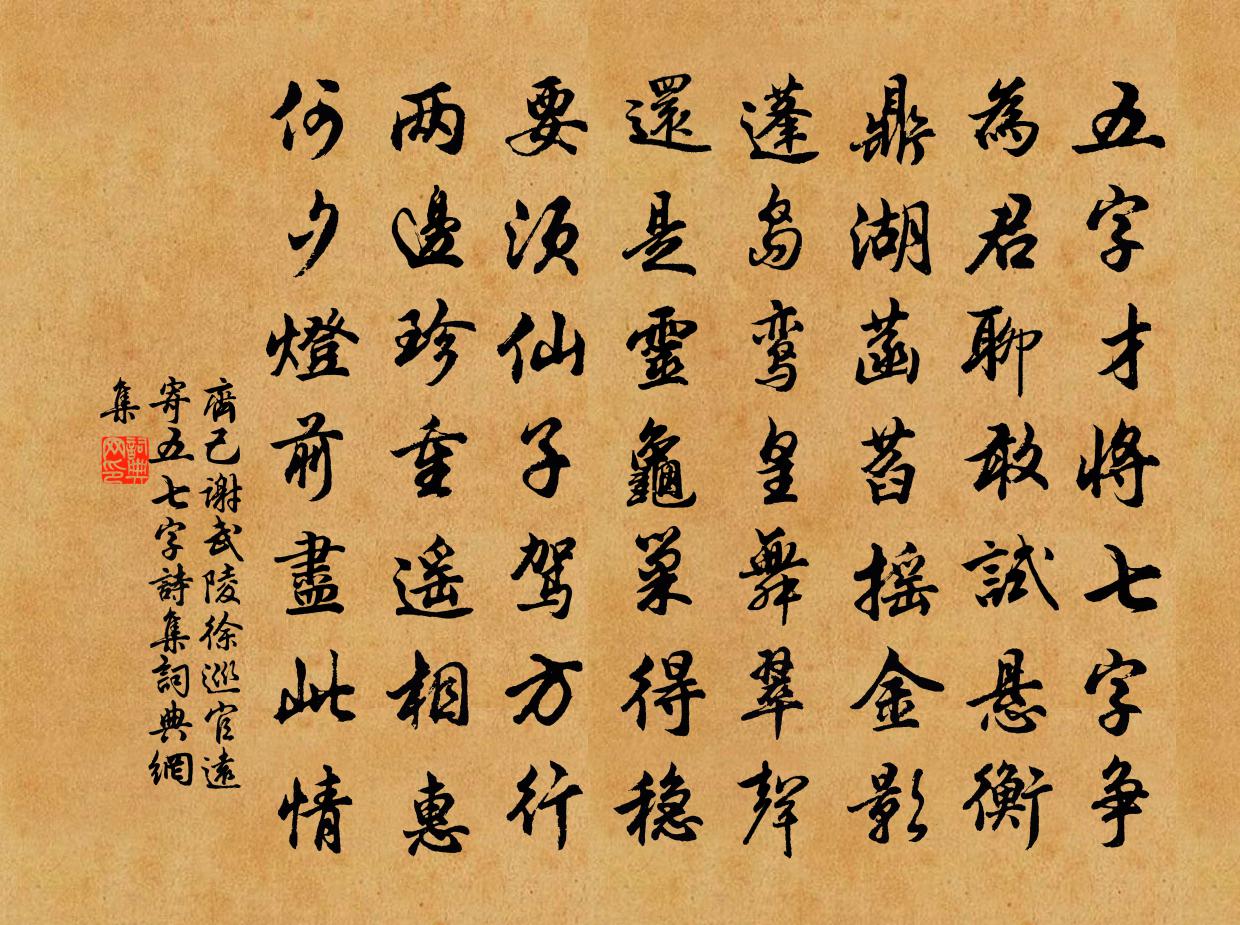 五字才將七字争
為君聊敢試悬衡
鼎湖菡萏摇金影
蓬岛鸾皇舞翠聲
還是靈龜巢得穏
要须仙子驾方行
两邊珍重遥相惠
何夕燈前盡此情
齊己谢武陵徐巡官遠
寄五七字詩集詞典網
集